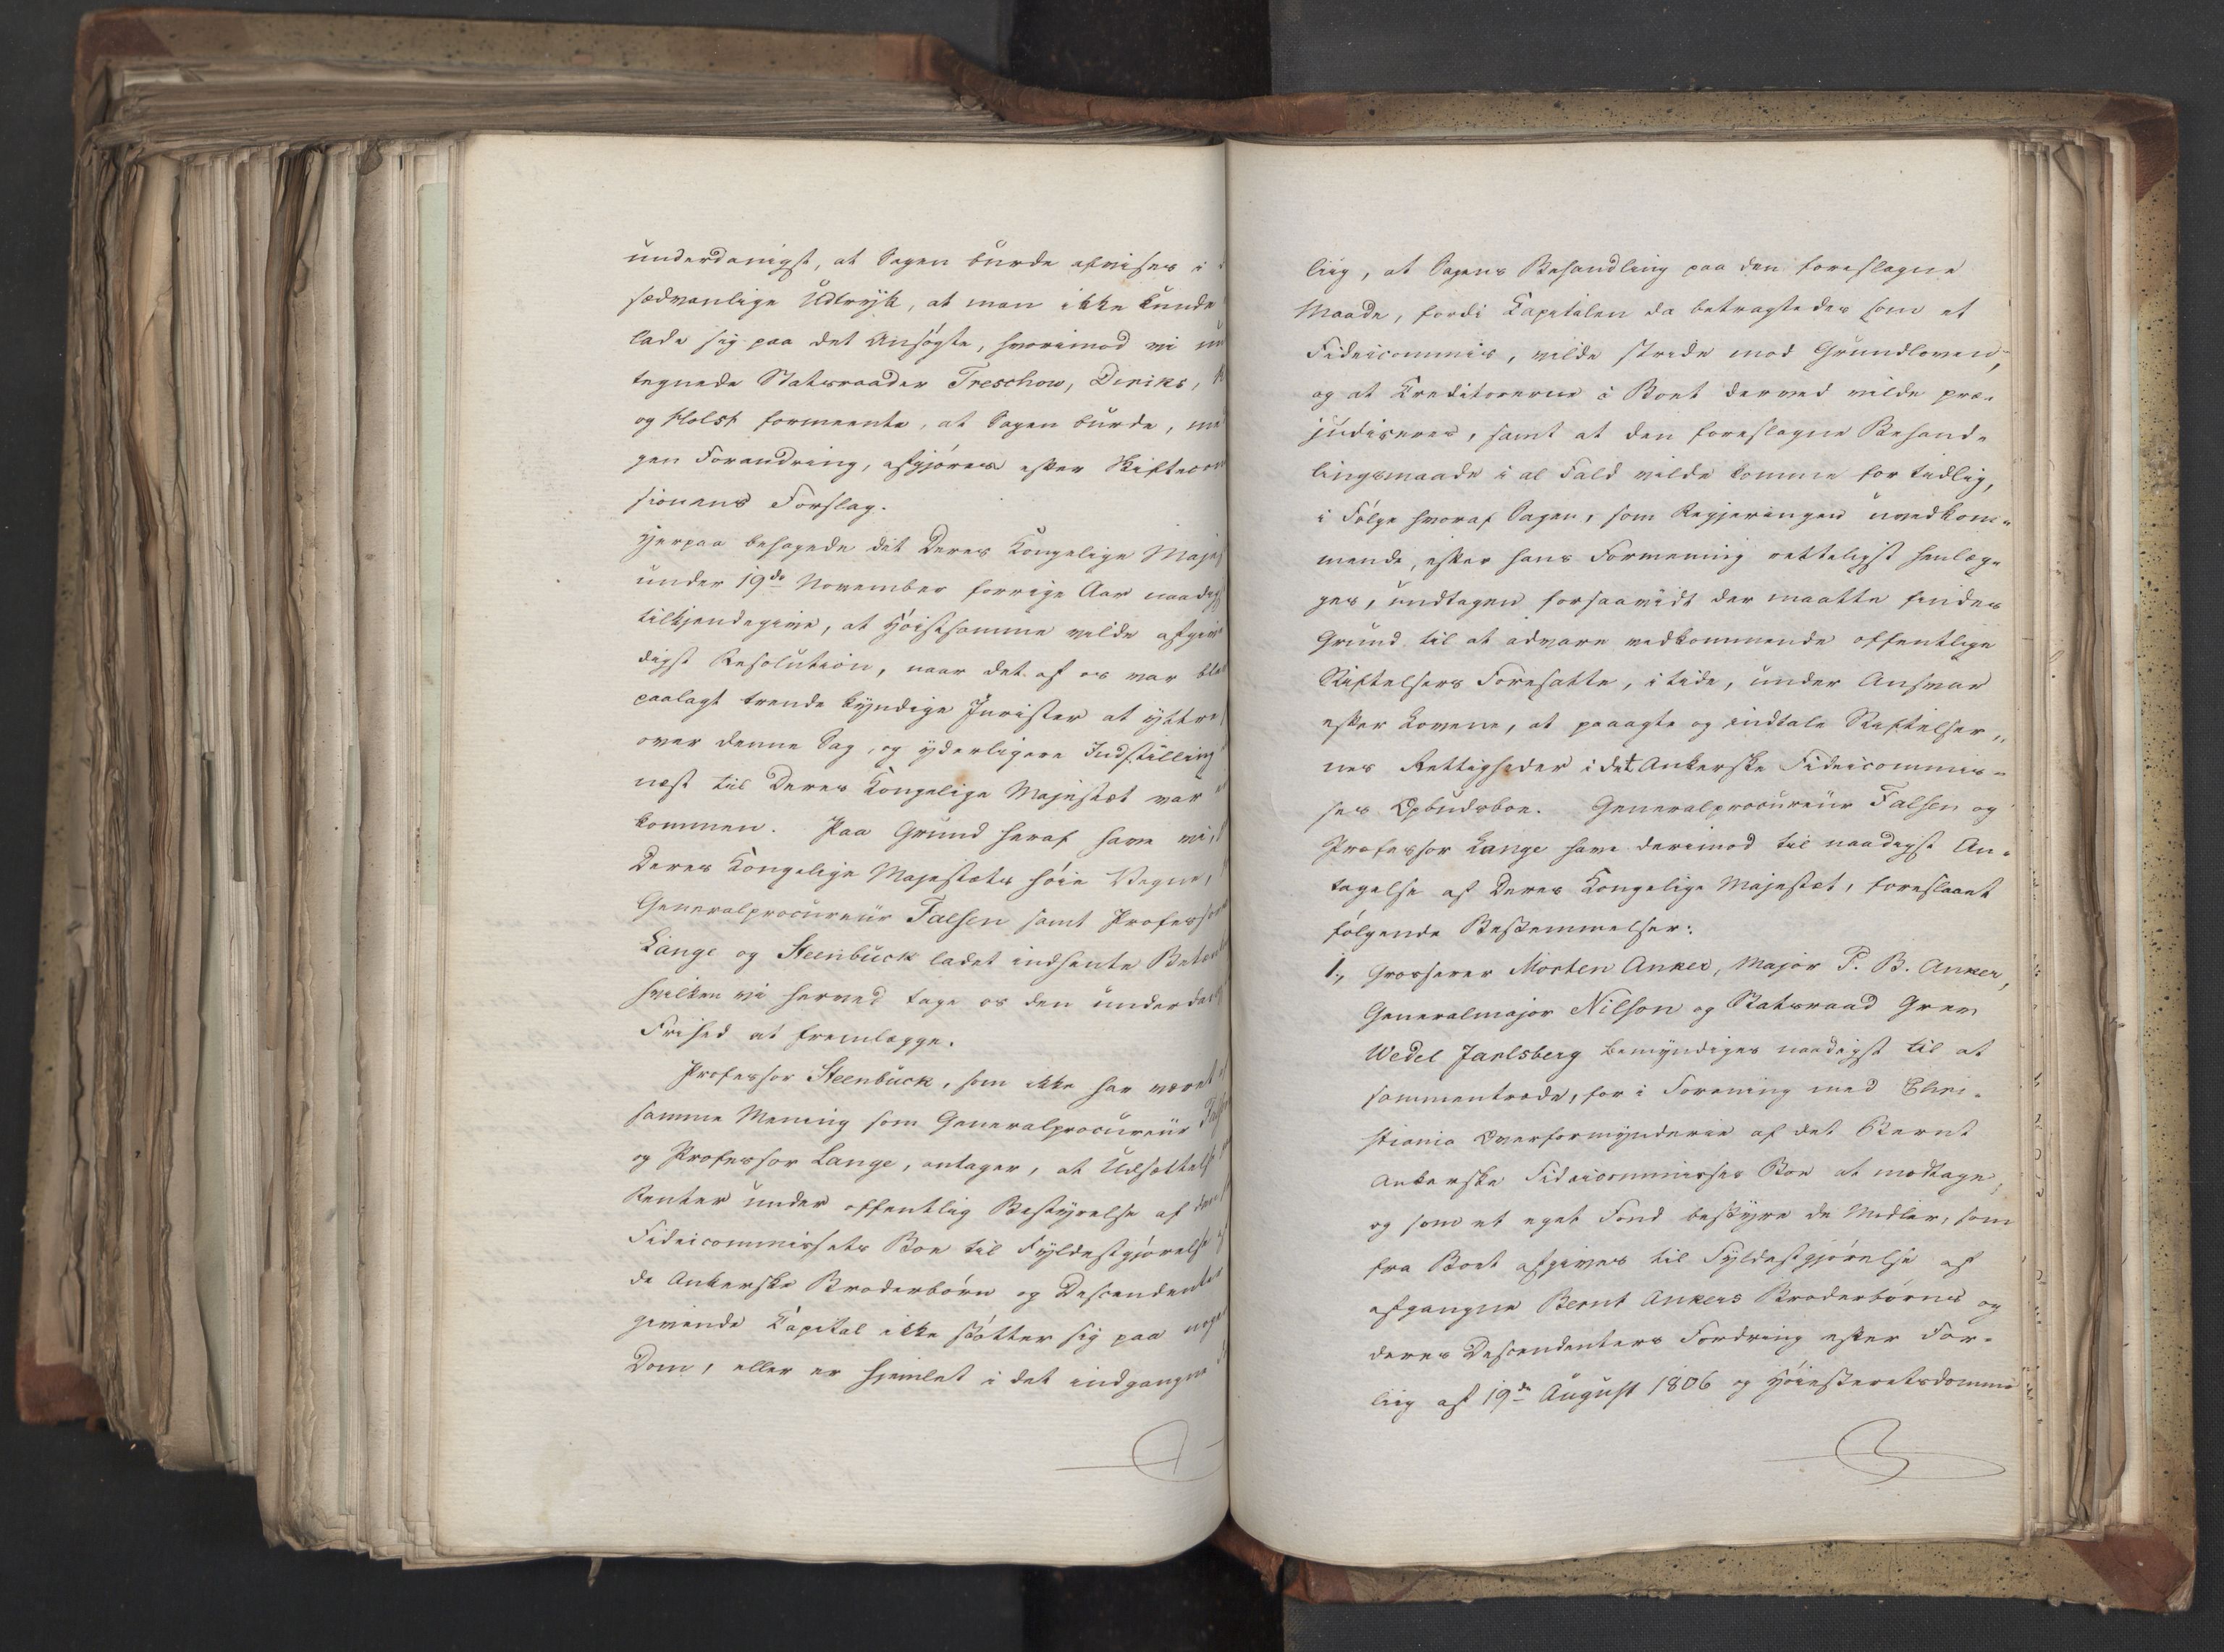 underdanigst, at Sagen burde afvises i
sædvanlige Udtryk, at man ikke kunde
lade sig paa det Ansøgte, hvorimod vi un
tegnede Statsraader Treschow, Diriks,
og Holst formeente, at Sagen burde,
gen Forandring, afgjøres efter Skiftecom
sionens Forslag.
Hjerpaa behagede det Deres Kongelige Maje
under 19de November forrige Aar naadig
tilkjendegive, at Høistsamme vilde afgive
digst Resolution, naar det af os var ble
paalagt trende kyndige Jurister at yttre
over denne Sag, og yderligere Indstilling
næst til Deres Kongelige Majestæt var
kommen. Paa Grund heraf have vi,
Deres Kongelige Majestæts høie Vegne,
Generalprocureur Falsen samt Professor
Lange og Steenbuck ladet indhente Betæn
hvilken vi herved tage os den underda
Frihed at fremlægge.
Professor Steenbuck, som ikke har været
samme Mening som Generalprocureur Fals
og Professor Lange, antager, at Udsættelse
Renter under offentlig Bestyrelse af den
Fideicommissets Boe til Fyldestgjørelse
de Ankerske Broderbørn og Descendenter
givende Capital ikke støtter sig paa noge
Dom, eller er hjemlet i det indgangne
liig, at Sagens Behandling paa den foreslagne
Maade, fordi Capitalen da betragtedes som et
Fideicommis, vilde stride mod Grundloven,
og at Creditorerne i Boet derved vilde præ-
judiceres, samt at den foreslagne Behand-
lingsmaade i al Fald vilde komme for tidlig,
i Følge hvoraf Sagen, som Regjeringen uvedkom-
mende, efter hans Formening retteligst henlæg-
ges, undtagen forsaavidt der maatte findes
Grund til at advare vedkommende offentlige
Stiftelsers Foresatte, i tide, under Ansvar
efter Lovene, at paaagte og indtale Stiftelser-
nes Rettigheder i det Ankerske Fideicommis-
ses Opbudsboe. Generalprocureur Falsen og
Professor Lange have derimod til naadigst An-
tagelse af Deres Kongelige Majestæt, foreslaaet
følgende Bestemmelser:
1., Grosserer Morten Anker, Major P. B. Anker,
Generalmajor Nilson og Statsraad Grev
Wedel Jarlsberg bemyndiges naadigst til at
sammentræde, for i Forening med Chri-
stiania Overformynderie af det Bernt
Ankerske Fideicommisses Boe at modtage,
og som et eget Fond bestyre de Midler, som
fra Boet afgives til Fyldestgjørelse af
afgangne Bernt Ankers Broderbørns og
deres Descendenters Fordring efter For-
liig af 19de August 1806 og Høiesteretsdomme